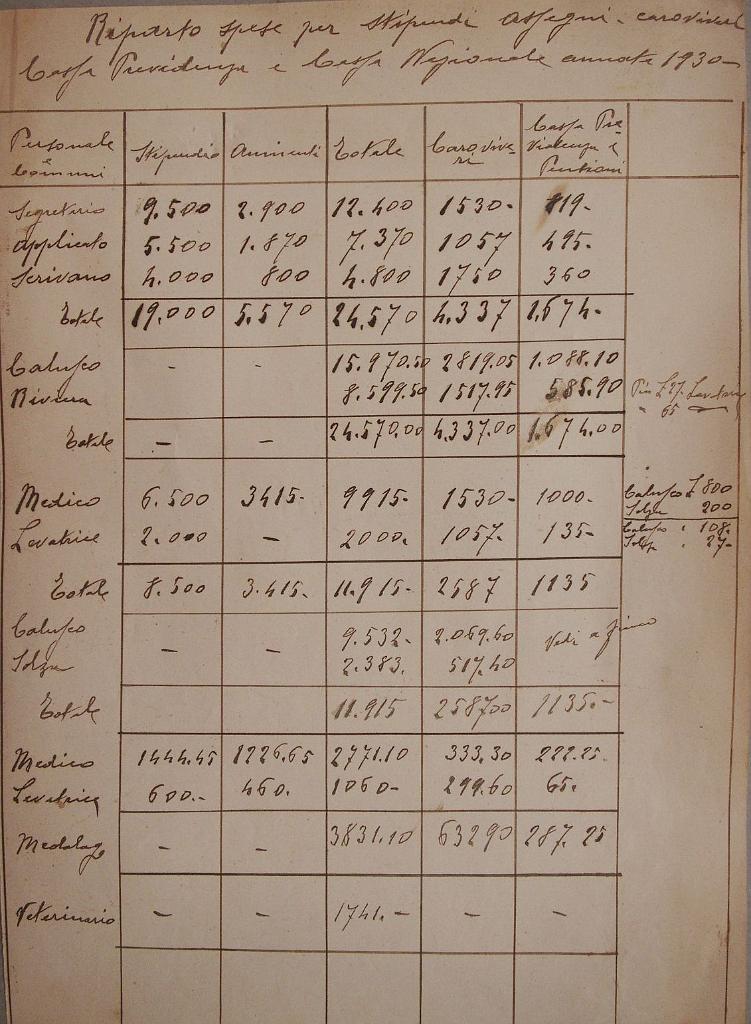 Riparto spese per stipendi assegni - caroviveri
Cassa Previdenza e Cassa Nazionale annata 1930 -
Personale e Comuni Stipendio Aumenti Totale Caroviveri Cassa Previdenza e Pensioni
Segretario 9.500 2.900 12.400 1530- 819-
Applicato 5.500 1.870 7.370 1057 495-
Scrivano 4.000 800 4.800 1750 360
Totale 19.000 5.570 24.570 4.337 1.674-
Calusco - - 15.970.50 2819.05 1.088.10
Riviera 8.599.50 1517.95 585.90 Più £ 27. Levatrice
" 65
Totale - - 24.570.00 4.337.00 1.674.00
Medico 6.500 3415- 9915- 1530- 1000- Calusco £ 800
Solza 200
Levatrice 2.000 - 2000. 1057- 135- Calusco " 108-
Solza " 27-
Totale 8.500 3.415- 11.915- 2587 1135
Calusco - - 9.532- 2.069.60 Vedi a fianco
Solza 2.383. 517.40
Totale 11.915 258700 1135.-
Medico 1444.45 1226.65 2771.10 333.30 222.25.
Levatrice 600.- 460. 1060- 299.60 65.
Medolago - - 3831.10 63290 287.25
Veterinario - - 1741.- - -